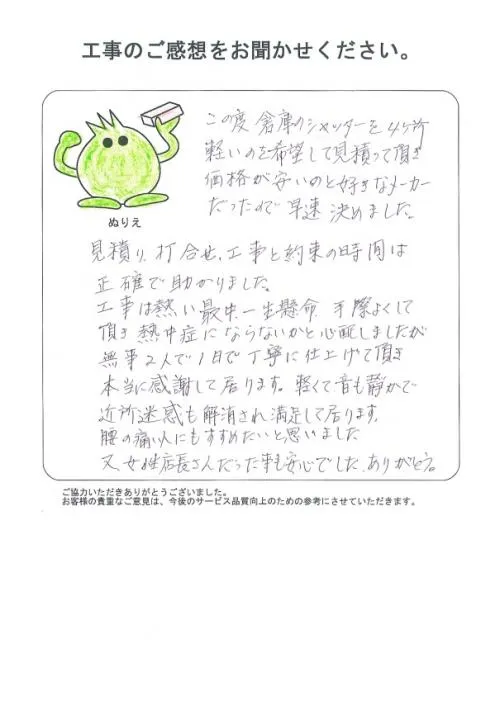 工事のご感想をお聞かせください。
この度倉庫のシャッターを4ヶ所
軽いのを希望して見積って頂き
価格が安いのと好きなメーカー
だったので早速決めました。
ぬりえ
見積り、打合せ、工事と約束の時間は
正確で助かりました。
工事は熱い最中一生懸命、手際よくして
頂き熱中症にならないかと心配しましたが
無事2人で1日で丁寧に仕上げて頂き
本当に感謝して居ります。軽くて音も静かで
近所迷惑も解消され満足して居ります。
腰の痛い人にもすすめたいと思いました
又女性店長さんだった事も安心でした。ありがとう。
ご協力いただきありがとうございました。
お客様の貴重なご意見は、今後のサービス品質向上のための参考にさせていただきます。